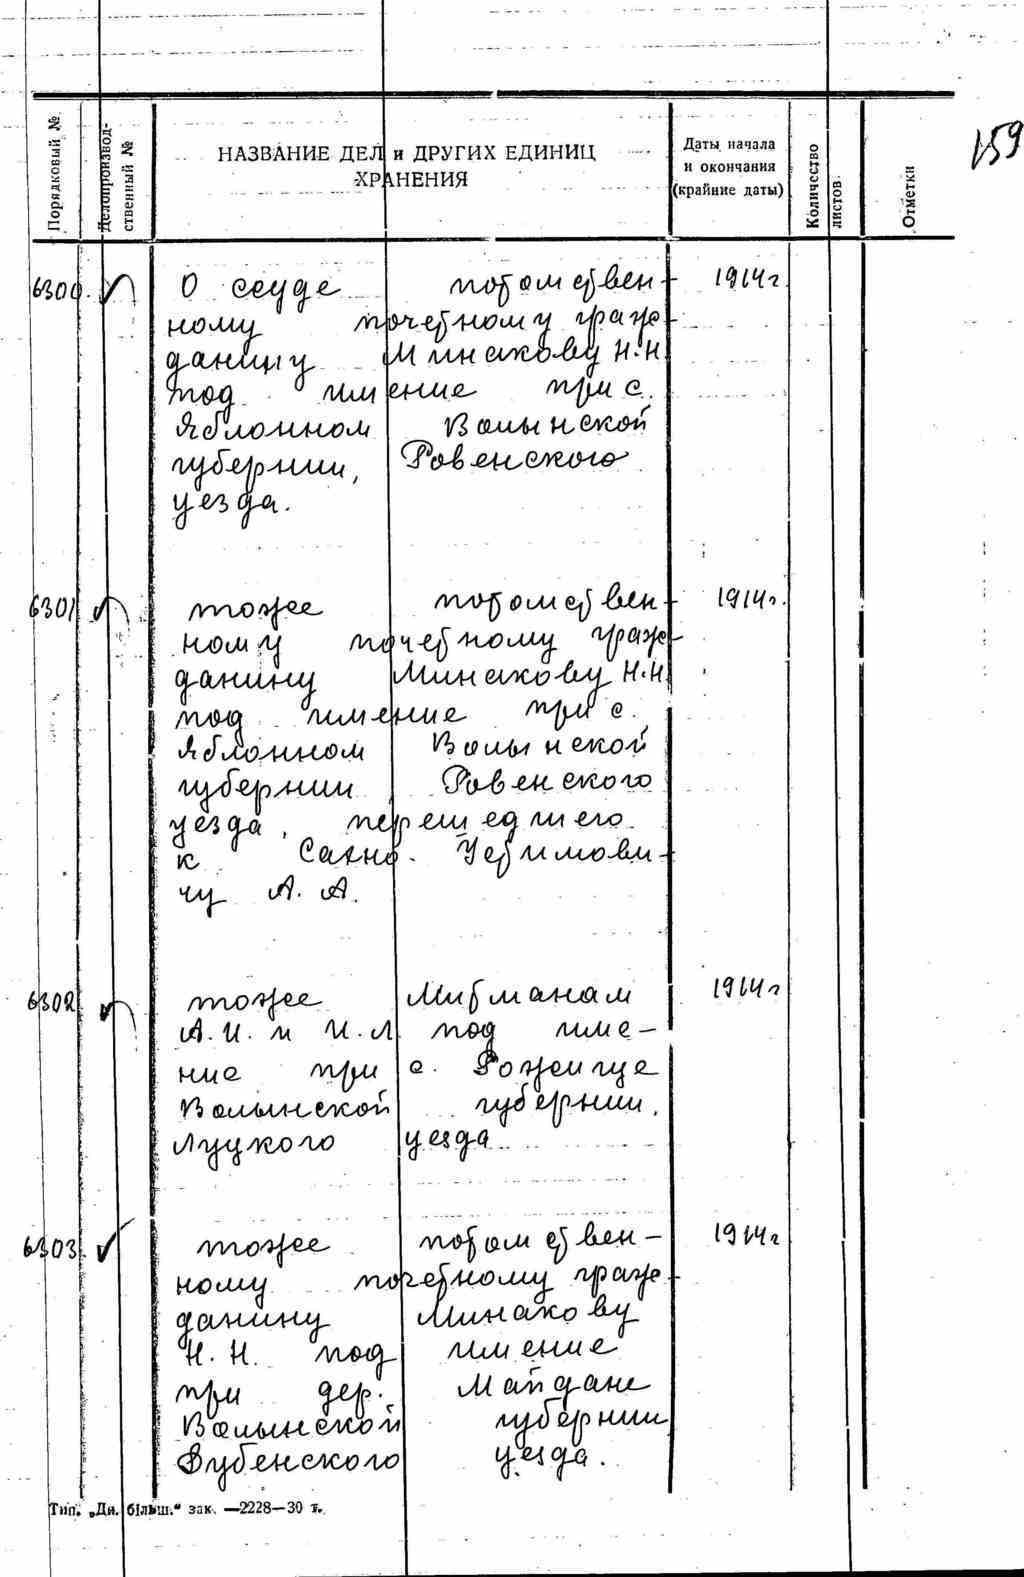 159
Порядковый №
Делопроизвод-
ственный №
НАЗВАНИЕ ДЕЛ и ДРУГИХ ЕДИНИЦ
ХРАНЕНИЯ
Даты начала
и окончания
(крайние даты)
Количество
листов
Отметки
6300. О ссуде потомствен- 1914г
ному почетному граж-
данину Минакову Н.Н.
под имение при с.
Яблонном Волынской
губернии, Ровенского
уезда.
6301 тоже потомствен- 1914г.
ному почетному граж-
данину Минакову Н.Н.
под имение при с.
Яблонном Волынской
губернии, Ровенского
уезда, перешедшего
к Сахно-Устимови-
чу А. А.
6302 тоже Митманам 1914г
А.И. и И.Л. под име-
ние при с. Рожище
Волынской губернии,
Луцкого уезда
6303. тоже потомствен- 1914г
ному почетному граж-
данину Минакову
Н.Н. под имение
при дер. Майдане
Волынской губернии
Дубенского уезда.
Тип. „Дн. більш.“ зак. —2228—30 т.